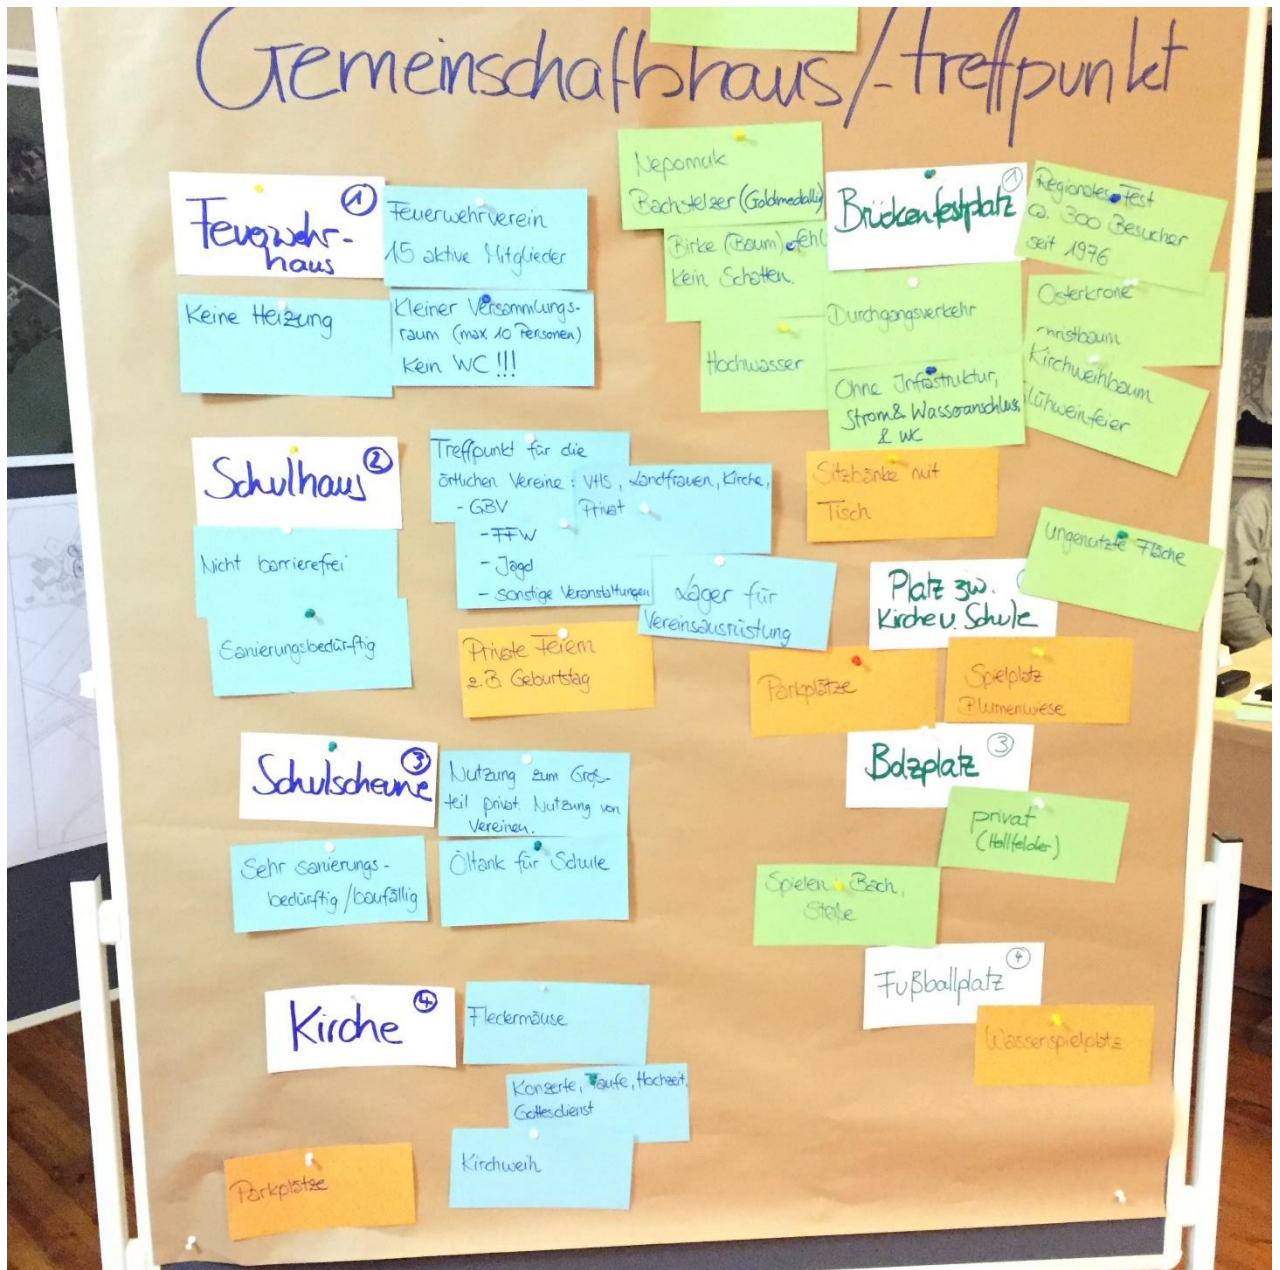 Gemeinschaftshaus/-treffpunkt
Feuerwehr-
haus
1
Feuerwehrverein
15 aktive Mitglieder
Keine Heizung
Kleiner Versammlungs-
raum (max 10 Personen)
Kein WC !!!
Schulhaus
2
Treffpunkt für die
örtlichen Vereine:
- GBV
- FFW
- Jagd
- sonstige Veranstaltungen
VHS, Landfrauen, Kirche,
Privat
Nicht barrierefrei
Sanierungsbedürftig
Lager für
Vereinsausrüstung
Private Feiern
z.B. Geburtstag
Schulscheune
3
Nutzung zum Groß-
teil privat. Nutzung von
Vereinen.
Sehr sanierungs-
bedürftig / baufällig
Öltank für Schule
Kirche
4
Fledermäuse
Konzerte, Taufe, Hochzeit,
Gottesdienst
Kirchweih
Parkplätze
Nepomuk
Bachstelzer (Goldmedaille)
Birke (Baum) fehl
Kein Schatten.
Hochwasser
Brückenfestplatz
1
Regionales Fest
ca. 300 Besucher
seit 1976
Durchgangsverkehr
Ohne Infrastruktur,
Strom & Wasseranschluss
& WC
Osterkrone
ristbaum
Kirchweihbaum
lühweinfeier
Sitzbänke mit
Tisch
Platz zw.
Kirche u. Schule
Ungenutzte Fläche
Parkplätze
Spielplatz
Blumenwiese
Bolzplatz
3
privat
(Hollfelder)
Spielen Bach,
Straße
Fußballplatz
4
Wasserspielplatz